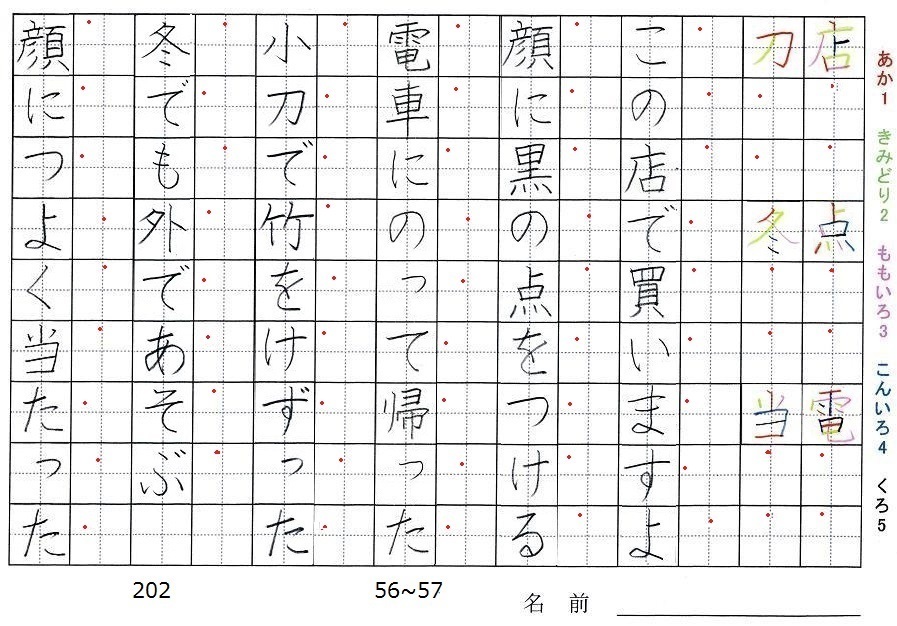 あか1 きみどり2 ももいろ3 こんいろ4 くろ5
店 点 電
刀 冬 当
この店で買いますよ
顔に黒の点をつける
電車にのって帰った
小刀で竹をけずった
冬でも外であそぶ
顔につよく当たった
202
56~57
名 前